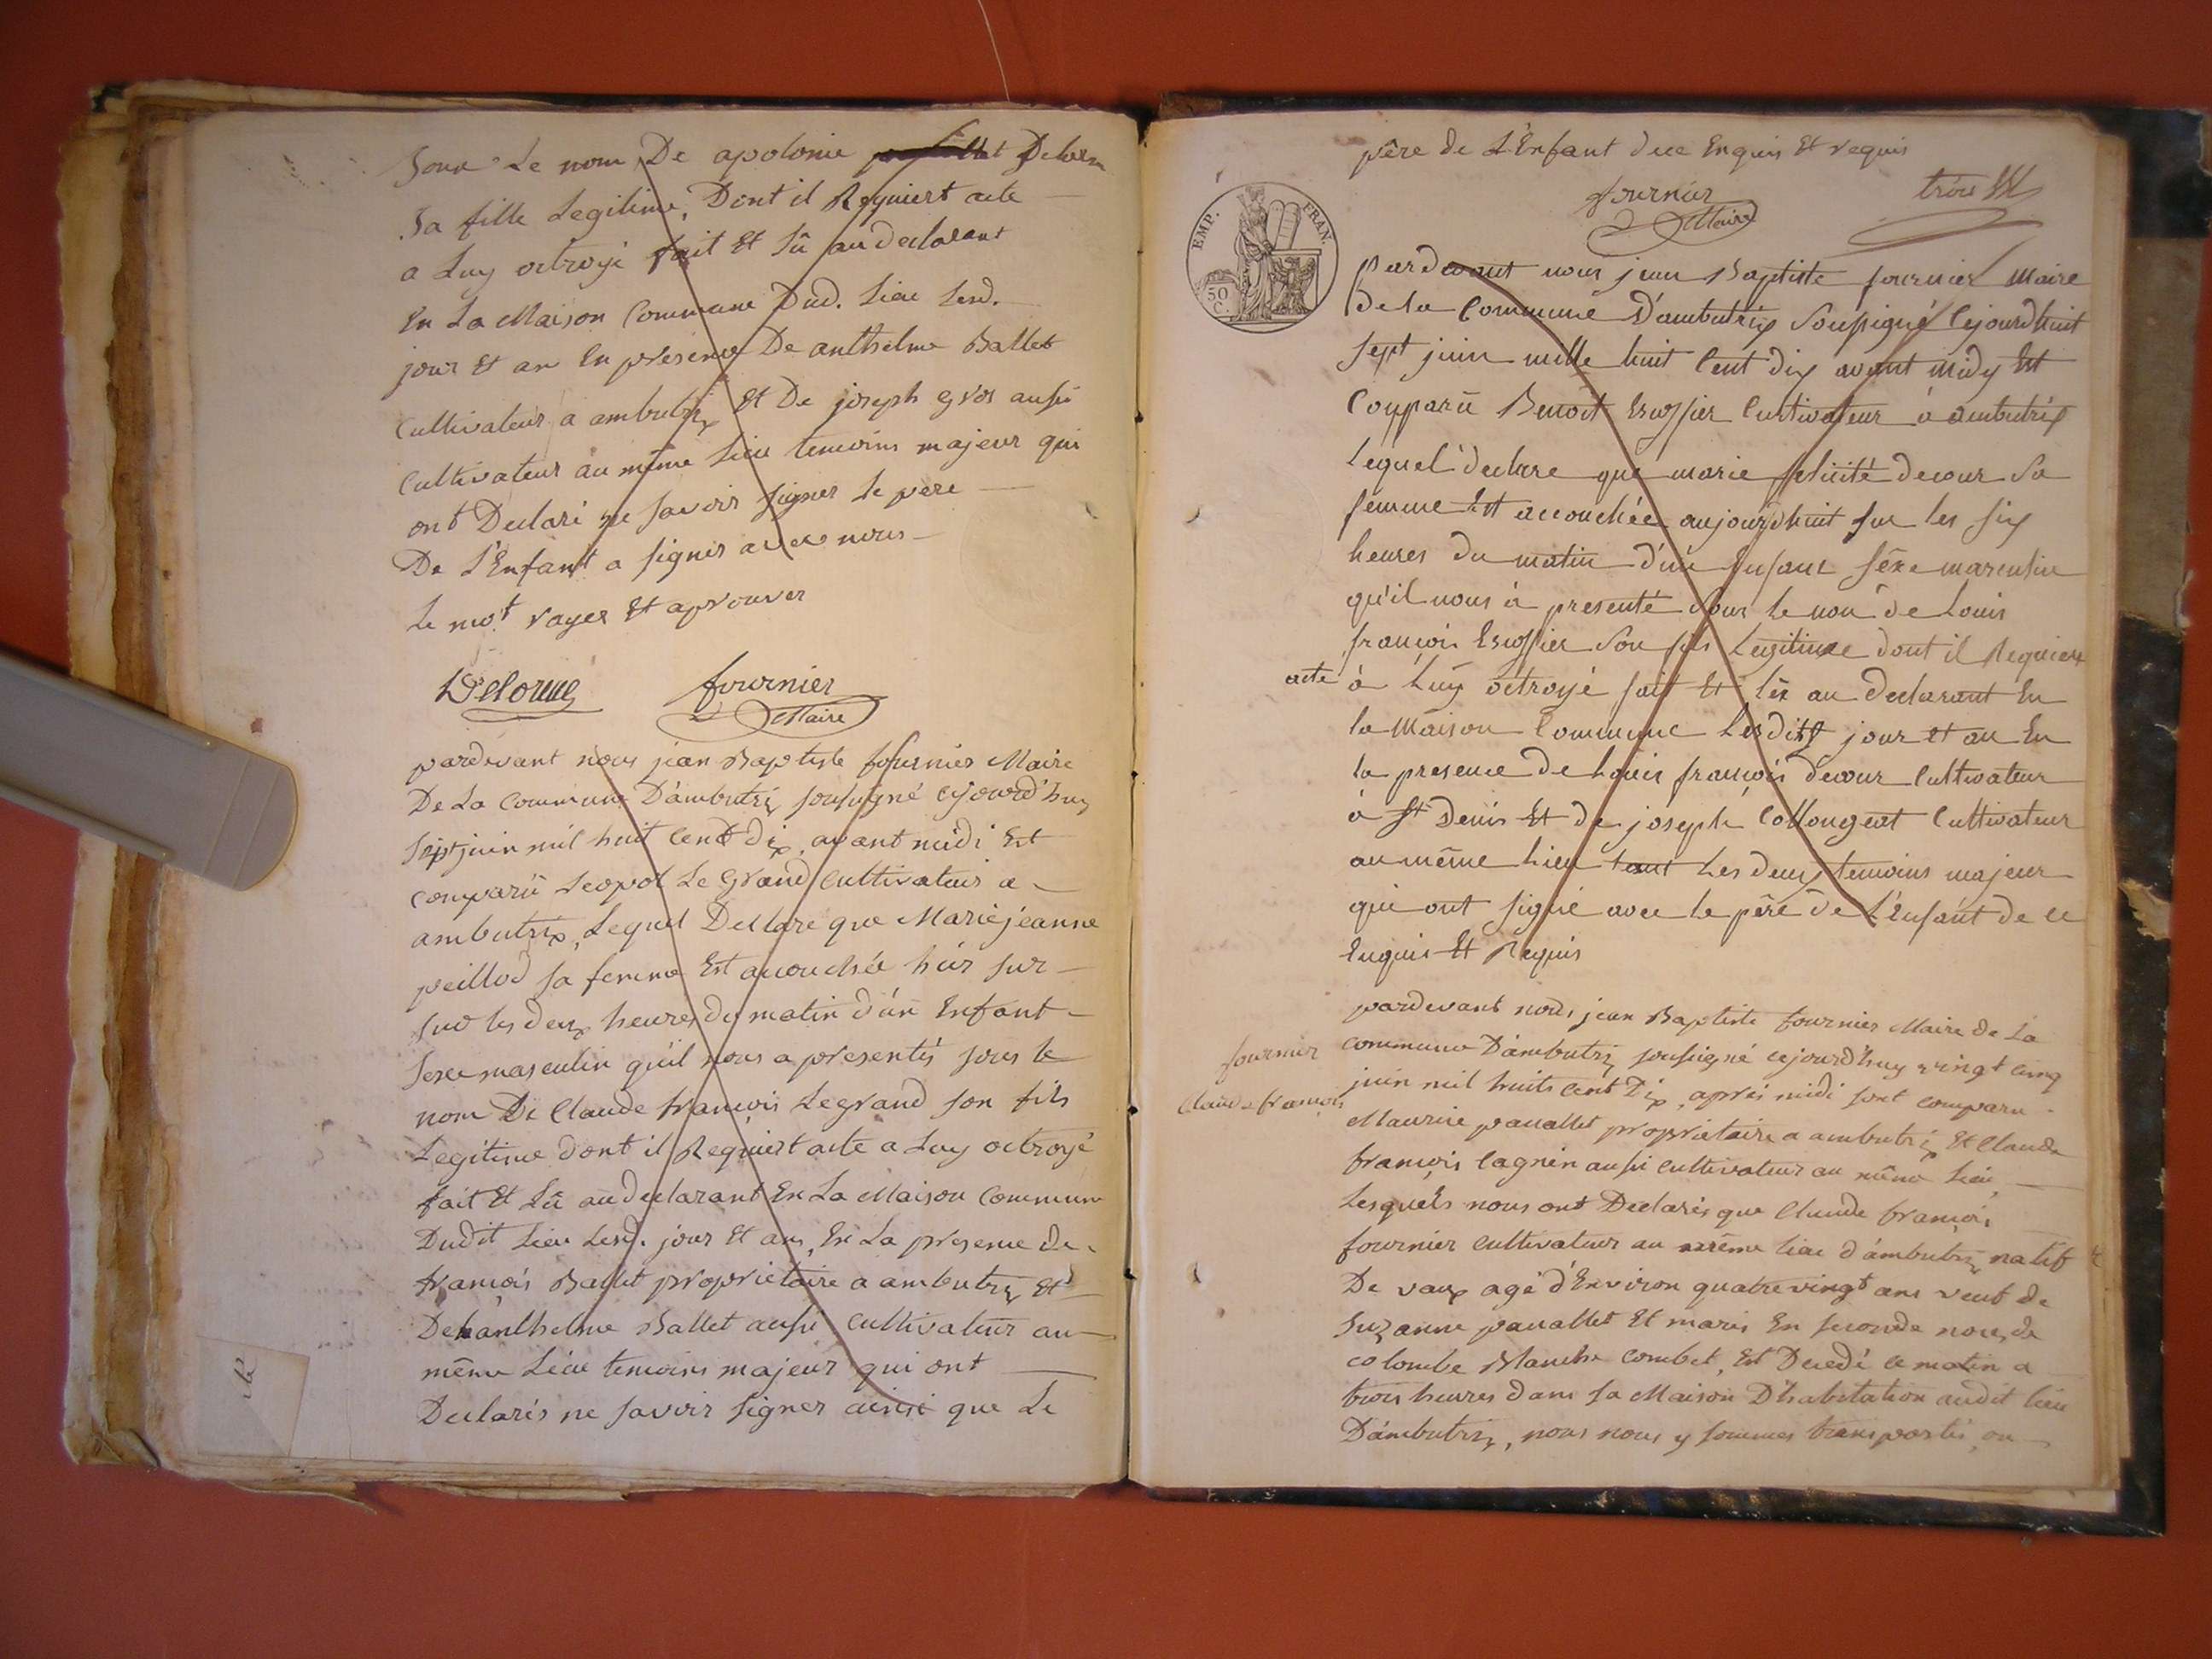 Sous Le nom De apolonie Delorm
Sa fille Legitime, Dont il Requiert acte
a Luy octroyé fait Et Lû au declarant
En La Maison Commune Dud. Lieu Lesd.
jour Et an En presence De anthelme Ballet
Cultivateur a ambutrix Et De joseph gros aussi
Cultivateur au même Lieu temoins majeur qui
ont Declaré ne savoir signer Le pere
De L'Enfant a signer avec nous
Le mot rayer Et aprouver
Delorme fournier
Maire
pardevant nous jean Baptiste fournier Maire
De La Commune D'ambutrix soussigné cejourd'huy
sept juin mil huit cent dix, avant midi Est
comparû Leopol Le Grand cultivateur a
ambutrix, Lequel Declare que Marie jeanne
peillod sa femme Est acouchée hier sur
sur les deux heures du matin d'un Enfant
sexe masculin qu'il nous a presentés sous le
nom De Claude francois Legrand son fils
Legitime dont il Requiert acte a Luy octroyé
fait Et Lû au declarant En La Maison Commune
Dudit Lieu Lesd. jour Et an, En La presence de
francois Ballet proprietaire a ambutrix Et
De anthelme Ballet aussi Cultivateur au
même Lieu temoins majeur qui ont
Declarés ne savoir signer ainsi que Le
père de L'Enfant dece Enquis Et requis
fournier
Maire
EMP. FRAN.
50 C.
Pardevant nous jean Baptiste fournier Maire
de la Commune D'ambutrix Soussigné Cejourdhuit
sept juin mille huit Cent dix avant Midy Est
Comparû Benoit Escoffier Cultivateur à ambutrix
Lequel declare que marie felicité decour Sa
femme Est accouchée aujourdhuit sur les six
heures du matin d'un Enfant séxe masculin
qu'il nous à presenté Sous le nom de Louis
françois Escoffier Son fils Legitime dont il Requiert
acte à Luy octroyé fait Et lû au declarant En
la Maison Commune Lesdits jour et an En
la presence de Louis françois decour Cultivateur
à St Denis Et de joseph Collongeat Cultivateur
au même Lieu tout Les deux temoins majeur
qui ont signé avec le père de L'Enfant de ce
Enquis Et Requis
fournier
Claude francois
pardevant nous, jean Baptiste fournier Maire de La
commune D'ambutrix soussigné cejourd'huy vingt cinq
juin mil huits cent Dix, après midi sont comparu
Maurice pauallet proprietaire a ambutrix Et Claude
francois cagnin aussi cultivateur au même Lieu,
Lesquels nous ont Declarés que Claude francois
fournier cultivateur au même lieu d'ambutrix natif
De vaux agé d'Environ quatre vingt ans veuf de
Suzanne pauallet Et maris En seconde noce, de
colombe Blanche combet, Est Decedé ce matin a
trois heures dans sa Maison D'habitation audit lieu
D'ambutrix, nous nous y sommes transportés, ou